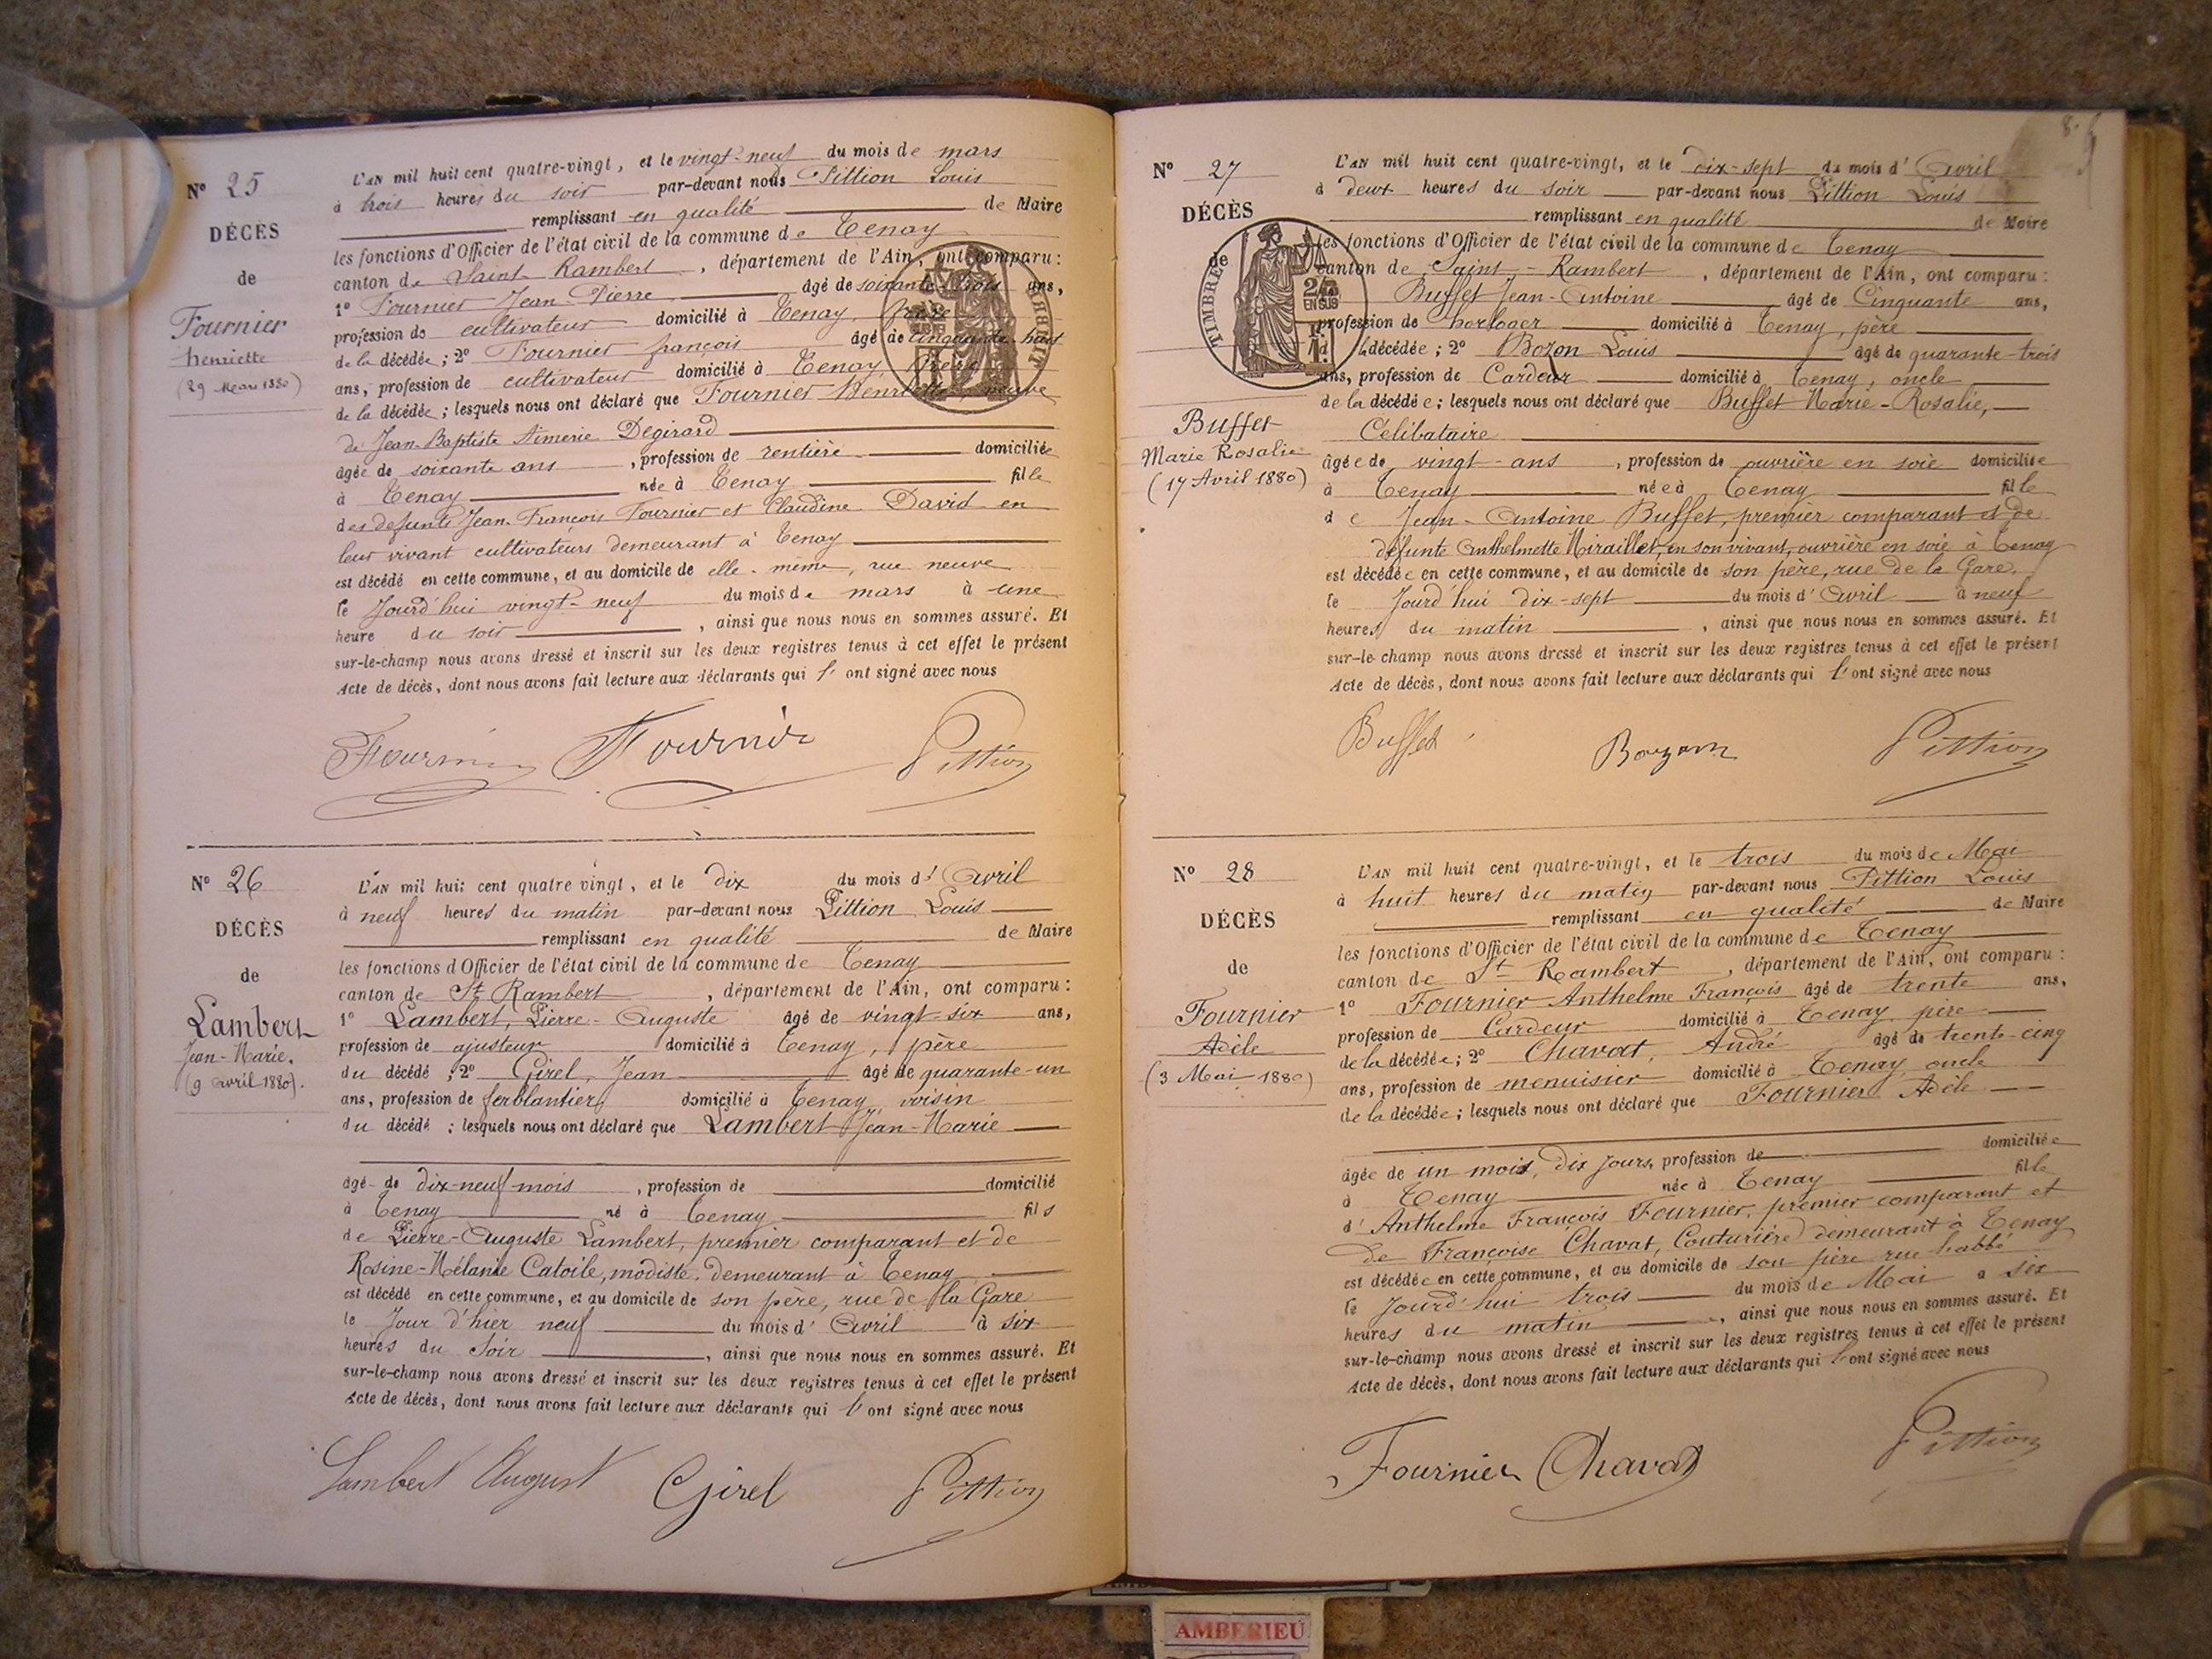 N° 25
DÉCÈS
de
Fournier
henriette
(29 Mars 1880)
L'AN mil huit cent quatre-vingt, et le vingt-neuf du mois de mars
à trois heures du soir par-devant nous Pittion Louis
remplissant en qualité de Maire
les fonctions d'Officier de l'état civil de la commune de Tenay
canton de Saint Rambert, département de l'Ain, ont comparu :
1° Fournier Jean-Pierre âgé de soixante-trois ans,
profession de cultivateur domicilié à Tenay, frère
de la décédée ; 2° Fournier françois âgé de cinquante-huit
ans, profession de cultivateur domicilié à Tenay, frère
de la décédée ; lesquels nous ont déclaré que Fournier Henriette, veuve
de Jean-Baptiste Aimerie Dégirard
âgée de soixante ans, profession de rentière domiciliée
à Tenay née à Tenay fille
des defunts Jean-François Fournier et Claudine David en
leur vivant cultivateurs demeurant à Tenay
est décédé en cette commune, et au domicile de elle-même, rue neuve
le Jourd'hui vingt-neuf du mois de mars à une
heure du soir, ainsi que nous nous en sommes assuré. Et
sur-le-champ nous avons dressé et inscrit sur les deux registres tenus à cet effet le présent
Acte de décès, dont nous avons fait lecture aux déclarants qui l'ont signé avec nous
Fournier Fournier Pittion
N° 26
DÉCÈS
de
Lambert
Jean-Marie.
(9 Avril 1880).
L'AN mil huit cent quatre vingt, et le dix du mois d'Avril
à neuf heures du matin par-devant nous Pittion Louis
remplissant en qualité de Maire
les fonctions d'Officier de l'état civil de la commune de Tenay
canton de St Rambert, département de l'Ain, ont comparu :
1° Lambert, Pierre-Auguste âgé de vingt-six ans,
profession de ajusteur domicilié à Tenay, père
du décédé ; 2° Girel, Jean âgé de quarante-un
ans, profession de ferblantier domicilié à Tenay voisin
du décédé ; lesquels nous ont déclaré que Lambert Jean-Marie
âgé de dix-neuf mois, profession de domicilié
à Tenay né à Tenay fils
de Pierre-Auguste Lambert, premier comparant et de
Rosine-Mélanie Catoile, modiste, demeurant à Tenay
est décédé en cette commune, et au domicile de son père, rue de la Gare
le Jour d'hier neuf du mois d'Avril à six
heures du soir, ainsi que nous nous en sommes assuré. Et
sur-le-champ nous avons dressé et inscrit sur les deux registres tenus à cet effet le présent
Acte de décès, dont nous avons fait lecture aux déclarants qui l'ont signé avec nous
Lambert August Girel Pittion
8.
N° 27
DÉCÈS
de
TIMBRE
2/10 EN SUS
Buffet
Marie Rosalie
(17 Avril 1880)
L'AN mil huit cent quatre-vingt, et le dix-sept du mois d'Avril
à deux heures du soir par-devant nous Pittion Louis
remplissant en qualité de Maire
les fonctions d'Officier de l'état civil de la commune de Tenay
canton de Saint-Rambert, département de l'Ain, ont comparu :
Buffet Jean-Antoine âgé de Cinquante ans,
profession de horloger domicilié à Tenay, père
décédée ; 2° Bozon Louis âgé de quarante-trois
ans, profession de Cardeur domicilié à Tenay, oncle
de la décédée ; lesquels nous ont déclaré que Buffet Marie-Rosalie,
Célibataire
âgée de vingt-ans, profession de ouvrière en soie domiciliée
à Tenay née à Tenay fille
de Jean-Antoine Buffet, premier comparant et de
défunte Anthelmette Miraillet, en son vivant, ouvrière en soie à Tenay
est décédée en cette commune, et au domicile de son père, rue de la Gare,
le Jourd'hui dix-sept du mois d'Avril à neuf
heures du matin, ainsi que nous nous en sommes assuré. Et
sur-le-champ nous avons dressé et inscrit sur les deux registres tenus à cet effet le présent
Acte de décès, dont nous avons fait lecture aux déclarants qui l'ont signé avec nous
Buffet Bozon Pittion
N° 28
DÉCÈS
de
Fournier
Adèle
(3 Mai 1880)
L'AN mil huit cent quatre-vingt, et le trois du mois de Mai
à huit heures du matin par-devant nous Pittion Louis
remplissant en qualité de Maire
les fonctions d'Officier de l'état civil de la commune de Tenay
canton de St Rambert, département de l'Ain, ont comparu :
1° Fournier Anthelme François âgé de trente ans,
profession de Cardeur domicilié à Tenay, père
de la décédée ; 2° Chavat, André âgé de trente-cinq
ans, profession de menuisier domicilié à Tenay, oncle
de la décédée ; lesquels nous ont déclaré que Fournier Adèle
âgée de un mois, dix jours, profession de domiciliée
à Tenay née à Tenay fille
d'Anthelme François Fournier, premier comparant et
de Françoise Chavat, Couturière demeurant à Tenay
est décédée en cette commune, et au domicile de son père rue
le Jourd'hui trois du mois de Mai à six
heures du matin, ainsi que nous nous en sommes assuré. Et
sur-le-champ nous avons dressé et inscrit sur les deux registres tenus à cet effet le présent
Acte de décès, dont nous avons fait lecture aux déclarants qui l'ont signé avec nous
Fournier Chavat Pittion
AMBERIEU